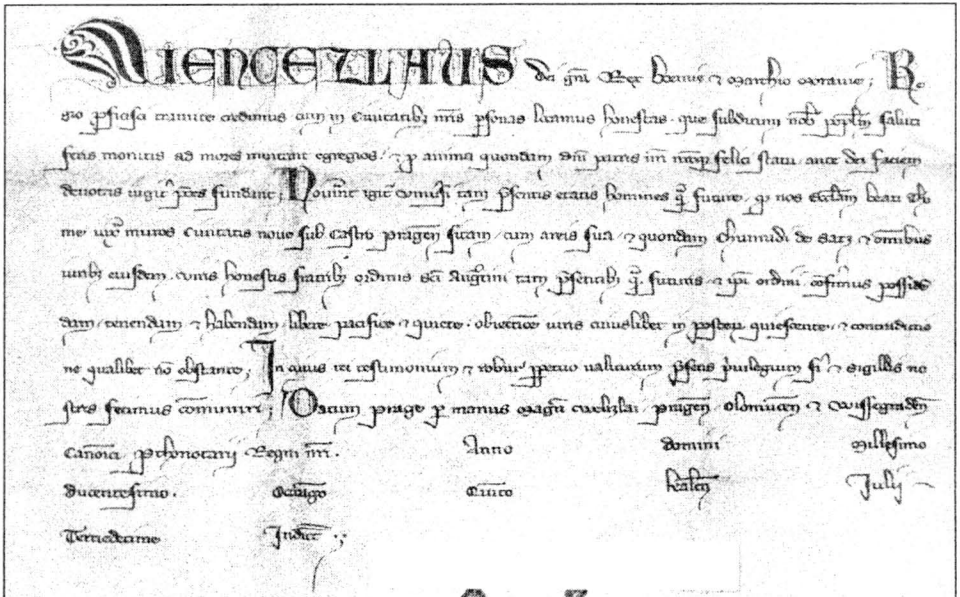 WENCEZLAUS dei gra Rex Boemie ⁊ Marchio Moravie; Re
gio tramite credimus cum in Civitatibz nris psonas locamus honestas, que subditum nob pplm saluti
feris monitis ad mores invitant egregios, ⁊ p anima quondam dni patris nri felici statu ante dei faciem
devotas iugit pces fundant; Noverint igit universi tam psentis etatis homines q future, q nos eccliam beati Tho
me iuxa muros Civitatis nove sub Castro pragen sitam, cum areis sua ⁊ quondam Chunradi de Satz ⁊ omnibus
iuribz eiusdem, viris honestis fratribz ordinis sci Augustini tam psentibz q futuris ⁊ ipi ordini posside
dam, tenendam ⁊ habendam, libere pacifice ⁊ quiete, cuiuslibet in posteru quiescente, ⁊ contradictio
ne qualibet no obstante; In cuius rei testimonium ⁊ robur ppetuo valiturum psens privilegium ⁊ sigillis no
stris fecimus comuniri; Datum prage p manus magri Welizlai, pragen, olomucen ⁊ Wissegraden
Canonici pthonotarij Regni nri. Anno domini Millesimo
Ducentesimo. kalen Julij
Terciedecime Indict.;